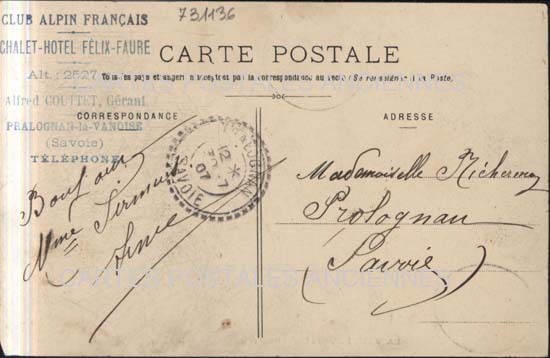 731136
CLUB ALPIN FRANÇAIS
CHALET-HOTEL FÉLIX-FAURE
Alt : 2527
Alfred COUTTET, Gérant
PRALOGNAN-la-VANOISE
(Savoie)
TÉLÉPHONE
CARTE POSTALE
Tous les pays étrangers n'acceptent pas la correspondance au verso (Se renseigner à la Poste).
CORRESPONDANCE
ADRESSE
PRALOGNAN
12
7
07
SAVOIE
Bonjour
Mme
Mademoiselle
Prolognan
Savoie
CARTES POSTALES ANCIENNES
CARTES POSTALES ANCIENNES